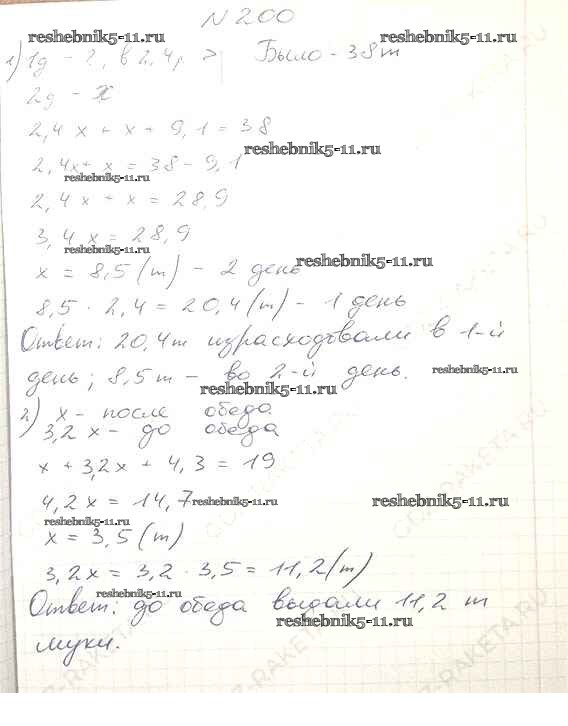 N 200
reshebnik5-11.ru reshebnik5-11.ru
1) 1д - ?, в 2,4р > Было - 38т
2д - x
2,4x + x + 9,1 = 38
reshebnik5-11.ru
2,4x + x = 38 - 9,1
reshebnik5-11.ru
2,4x + x = 28,9
3,4x = 28,9
reshebnik5-11.ru
x = 8,5 (т) - 2 день
reshebnik5-11.ru
8,5 · 2,4 = 20,4 (т) - 1 день
Ответ: 20,4т израсходовали в 1-й
день; 8,5т - во 2-й день.
reshebnik5-11.ru
reshebnik5-11.ru
2) x - после обеда
3,2x - до обеда
x + 3,2x + 4,3 = 19
4,2x = 14,7
reshebnik5-11.ru reshebnik5-11.ru
reshebnik5-11.ru
x = 3,5 (т)
3,2x = 3,2 · 3,5 = 11,2 (т)
reshebnik5-11.ru
Ответ: до обеда выдали 11,2 т
reshebnik5-11.ru
муки.